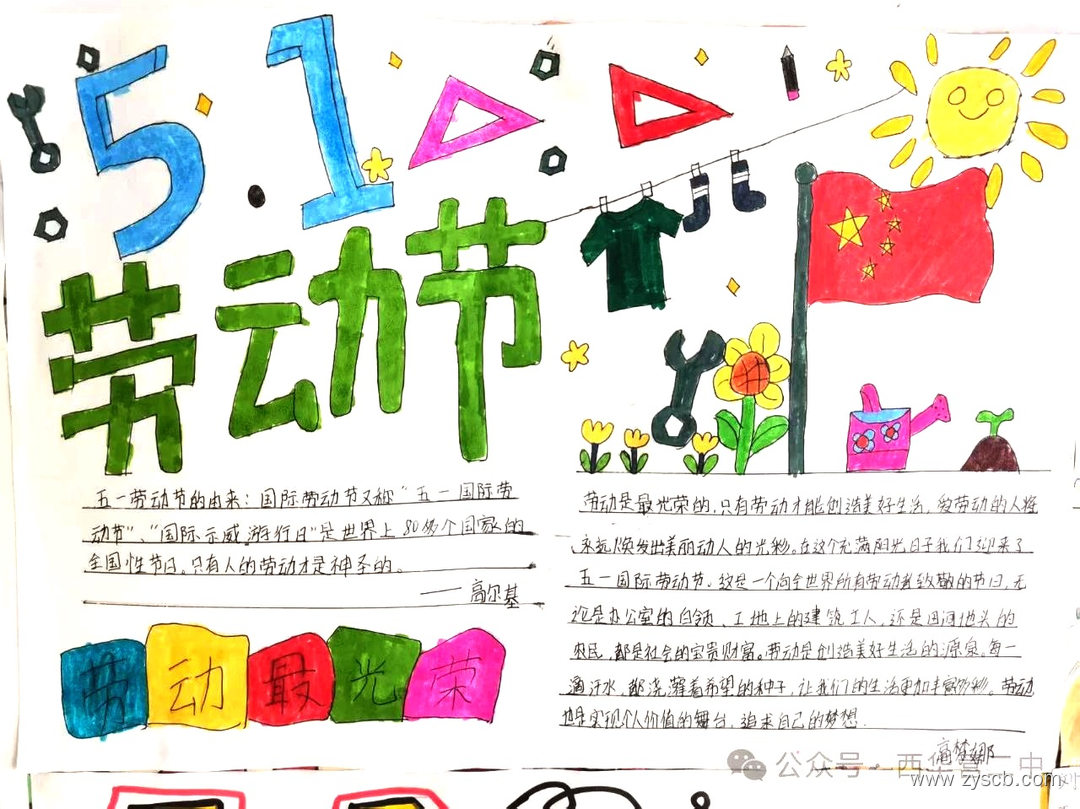 5.1
劳动节
五一劳动节的由来：国际劳动节又称“五一国际劳
动节”、“国际示威游行日”是世界上80多个国家的
全国性节日。只有人的劳动才是神圣的。
——高尔基
劳动最光荣
劳动是最光荣的，只有劳动才能创造美好生活，爱劳动的人将
永远焕发出美丽动人的光彩。在这个充满阳光日子我们迎来了
五一国际劳动节。这是一个向全世界所有劳动者致敬的节日，无
论是办公室的白领、工地上的建筑工人，还是田间地头的
农民，都是社会的宝贵财富。劳动是创造美好生活的源泉。每一
滴汗水，都浇灌着希望的种子，让我们的生活更加丰富多彩。劳动
也是实现个人价值的舞台，追求自己的梦想.
高梦娜
公众号·西华营一中
www.zyscb.com